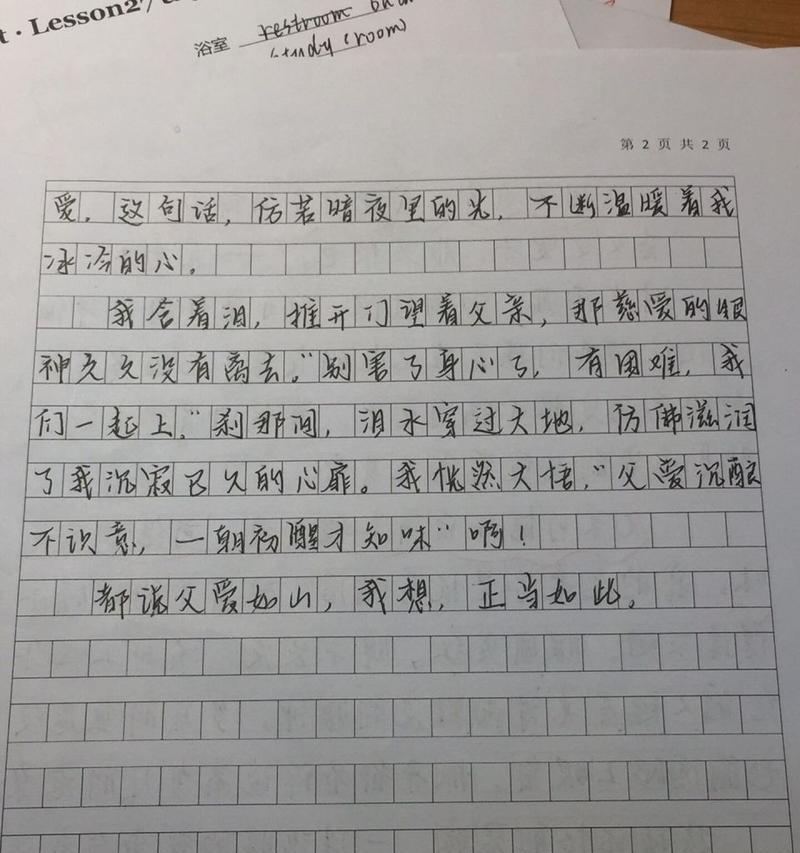 t · Lesson2
浴室 restroom
study (room)
第 2 页 共 2 页
爱，这句话，仿若暗夜里的光，不断温暖着我
冰冷的心。
我含着泪，推开门望着父亲，那慈爱的眼
神久久没有离去。“别害了身心了，有困难，我
们一起上。”刹那间，泪水穿过大地，仿佛滋润
了我沉寂已久的心扉。我恍然大悟，“父爱沉酿
不识意，一朝初醒才知味”啊！
都说父爱如山，我想，正当如此。